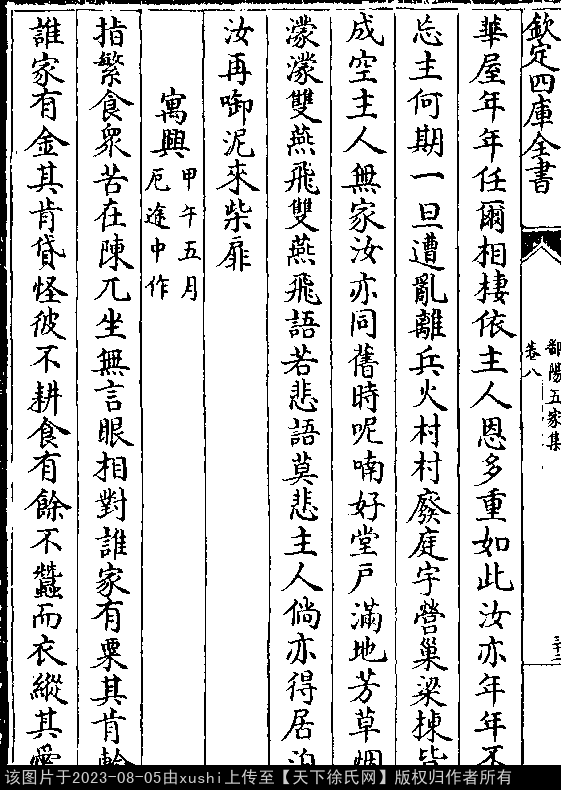 欽定四庫全書
鄱陽五家集
卷八
華屋年年任爾相棲依主人恩多重如此汝亦年年不
忘主何期一旦遭亂離兵火村村廢庭宇營巢梁楝皆
成空主人無家汝亦同舊時呢喃好堂戶滿地芳草烟
濛濛雙燕飛雙燕飛語若悲語莫悲主人倘亦得居
汝再啣泥來柴扉
寓興
甲午五月
厄途中作
指繁食衆苦在陳兀坐無言眼相對誰家有粟其肯輸
誰家有金其肯貸怪彼不耕食有餘不蠶而衣縱其
该图片于2023-08-05由xushi上传至【天下徐氏网】版权归作者所有